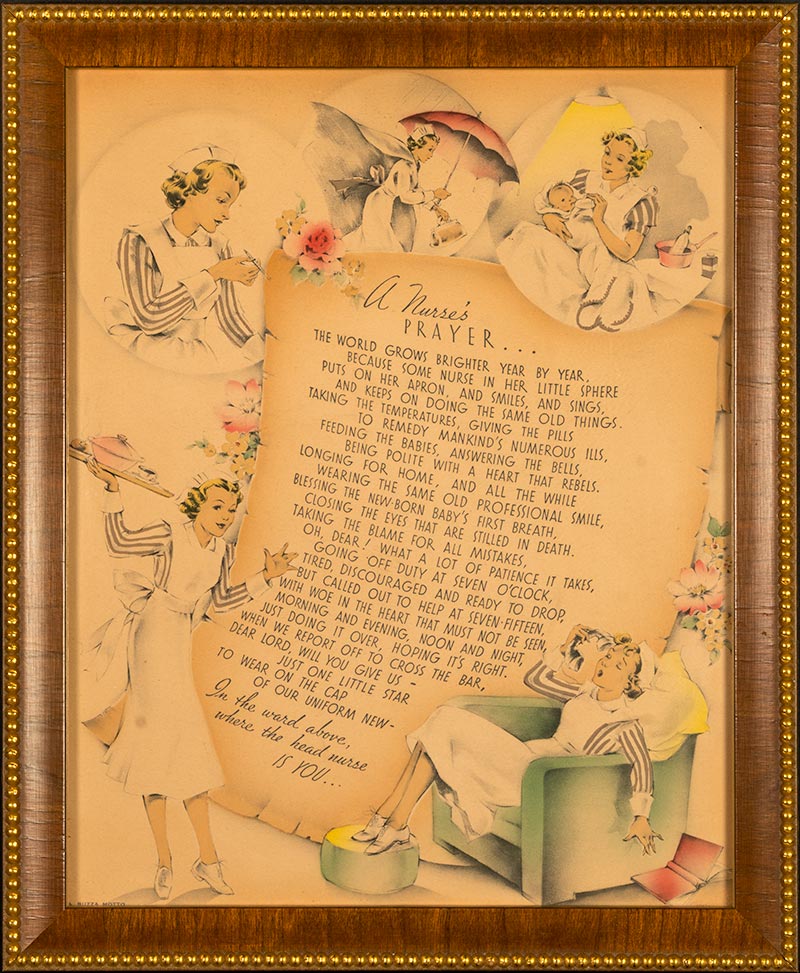 A Nurse's
PRAYER...
THE WORLD GROWS BRIGHTER YEAR BY YEAR,
BECAUSE SOME NURSE IN HER LITTLE SPHERE
PUTS ON HER APRON, AND SMILES, AND SINGS,
AND KEEPS ON DOING THE SAME OLD THINGS.
TAKING THE TEMPERATURES, GIVING THE PILLS
TO REMEDY MANKIND'S NUMEROUS ILLS,
FEEDING THE BABIES, ANSWERING THE BELLS,
BEING POLITE WITH A HEART THAT REBELS.
LONGING FOR HOME, AND ALL THE WHILE
WEARING THE SAME OLD PROFESSIONAL SMILE,
BLESSING THE NEW-BORN BABY'S FIRST BREATH,
CLOSING THE EYES THAT ARE STILLED IN DEATH.
TAKING THE BLAME FOR ALL MISTAKES,
OH, DEAR! WHAT A LOT OF PATIENCE IT TAKES,
GOING OFF DUTY AT SEVEN O'CLOCK,
TIRED, DISCOURAGED AND READY TO DROP,
BUT CALLED OUT TO HELP AT SEVEN-FIFTEEN,
WITH WOE IN THE HEART THAT MUST NOT BE SEEN,
MORNING AND EVENING, NOON AND NIGHT,
JUST DOING IT OVER, HOPING IT'S RIGHT.
WHEN WE REPORT OFF TO CROSS THE BAR,
DEAR LORD, WILL YOU GIVE US -
JUST ONE LITTLE STAR
TO WEAR ON THE CAP
OF OUR UNIFORM NEW-
In the ward above,
where the head nurse
IS YOU...
A BUZZA MOTTO